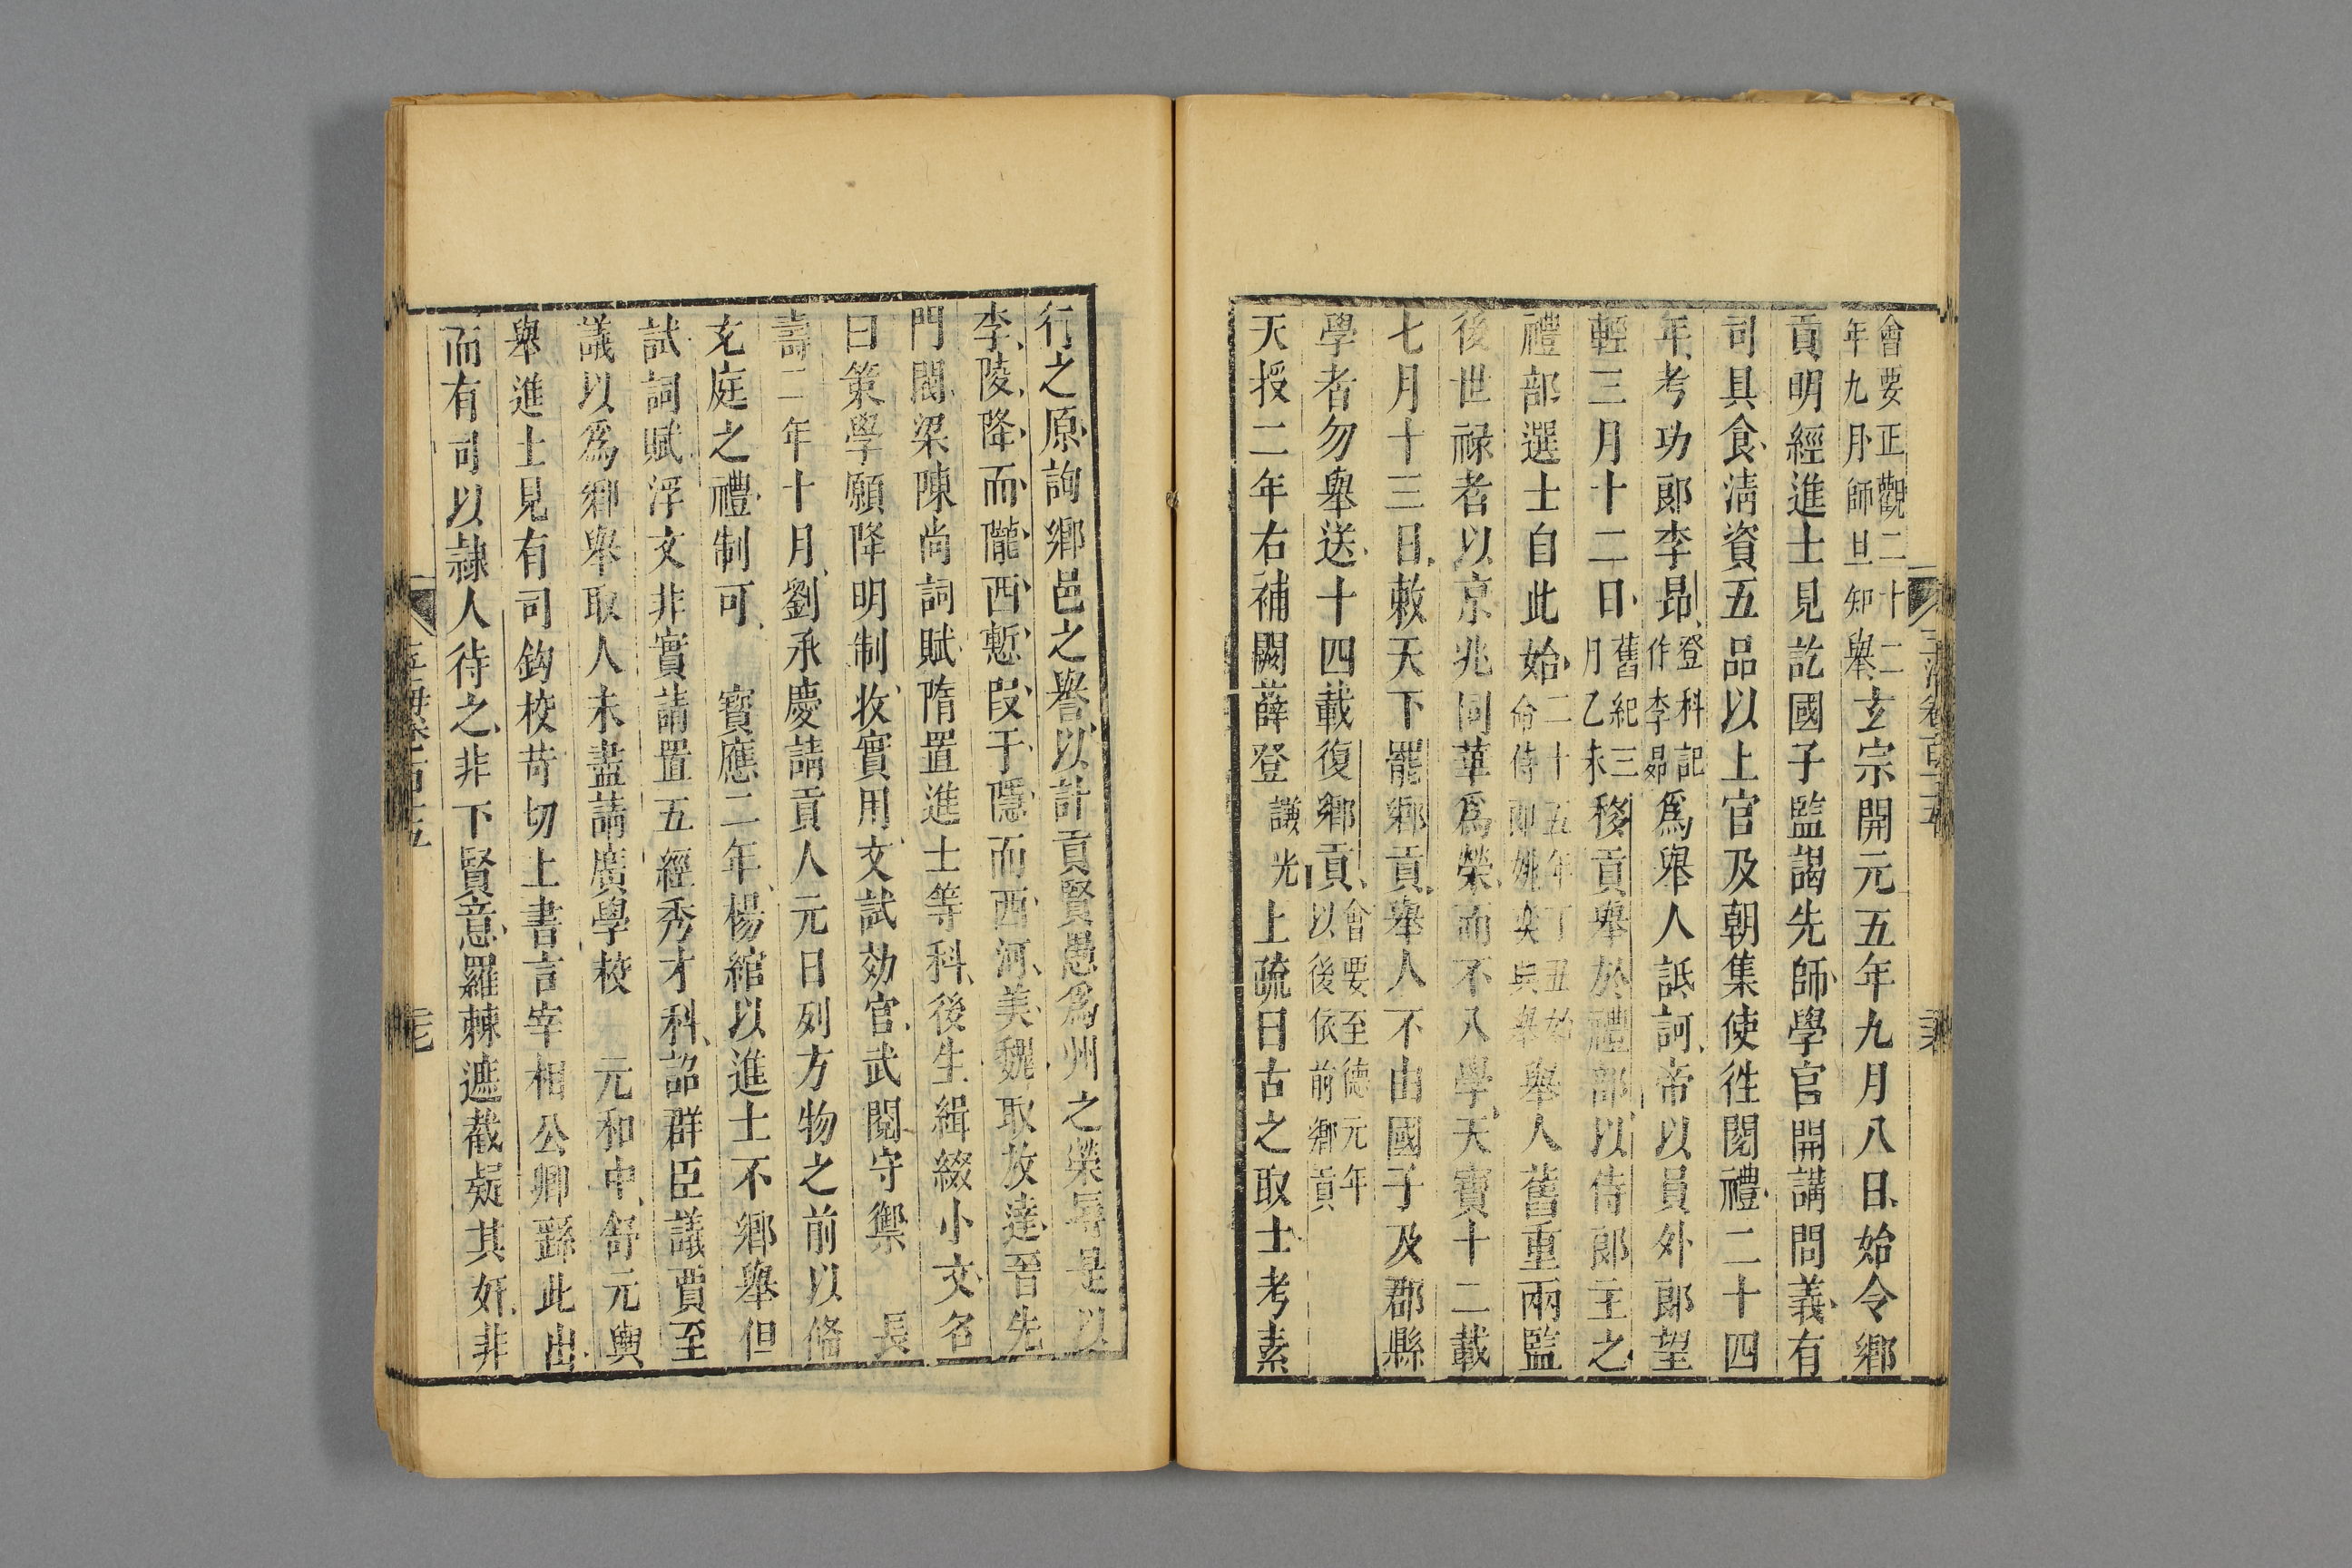 會要正觀二十二
年九月師旦知舉玄宗開元五年九月八日始令鄉
貢明經進士見訖國子監謁先師學官開講問義有
司具食清資五品以上官及朝集使徃閱禮二十四
年考功郎李昂登科記
作李昴爲舉人詆訶帝以員外郎望
輕三月十二日舊紀三
月乙未移貢舉於禮部以侍郎主之
禮部選士自此始二十五年丁丑始
命侍郎姚奕典舉舉人舊重兩監
後世禄者以京兆同華爲榮而不入學天寶十二載
七月十三日敕天下罷鄉貢舉人不由國子及郡縣
學者勿舉送十四載復鄉貢會要至德元年
以後依前鄉貢
天授二年右補闕薛登謙光上疏曰古之取士考素
行之原詢鄉邑之譽以計貢賢愚爲州之榮辱是以
李陵降而隴西慙叚干隱而西河美魏取放達晉先
門閥梁陳尚詞賦隋置進士等科後生緝綴小文名
曰策學願降明制收實用文試効官武閱守禦　長
壽二年十月劉承慶請貢人元日列方物之前以備
充庭之禮制可　寶應二年楊綰以進士不鄉舉但
試詞賦浮文非實請置五經秀才科詔群臣議賈至
議以爲鄉舉取人未盡請廣學校　元和中舒元輿
舉進士見有司鈎校苛切上書言宰相公卿繇此出
而有司以隷人待之非下賢意羅棘遮截疑其奸非